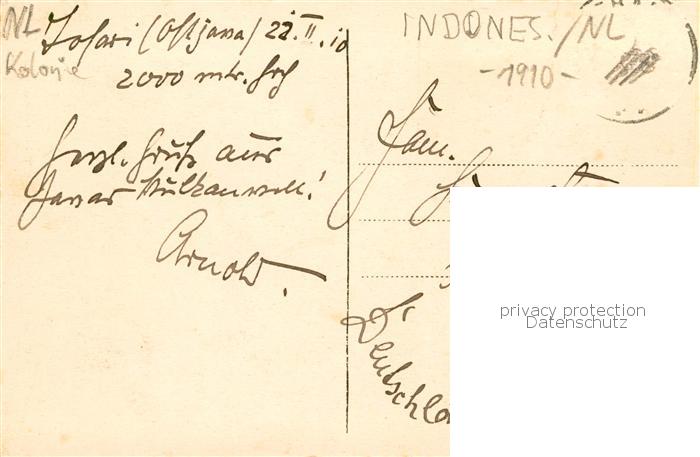 NL
Kolonie
Tosari (Ostjava) 22.II.10
2000 mtr. hch
Herzl. Gruß aus
Javas Vulkanwelt!
Arnold.
INDONES./NL
-1910-
Fam.
Deutschla
privacy protection
Datenschutz